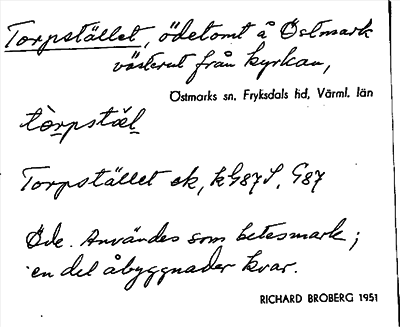 Torpstället, ödetomt å Östmark
västerut från kyrkan,
Östmarks sn. Fryksdals hd, Värml. län
tòrpstæl
Torpstället ek, kG87S, G87
Öde. Användes som betesmark;
en del åbyggnader kvar.
RICHARD BROBERG 1951